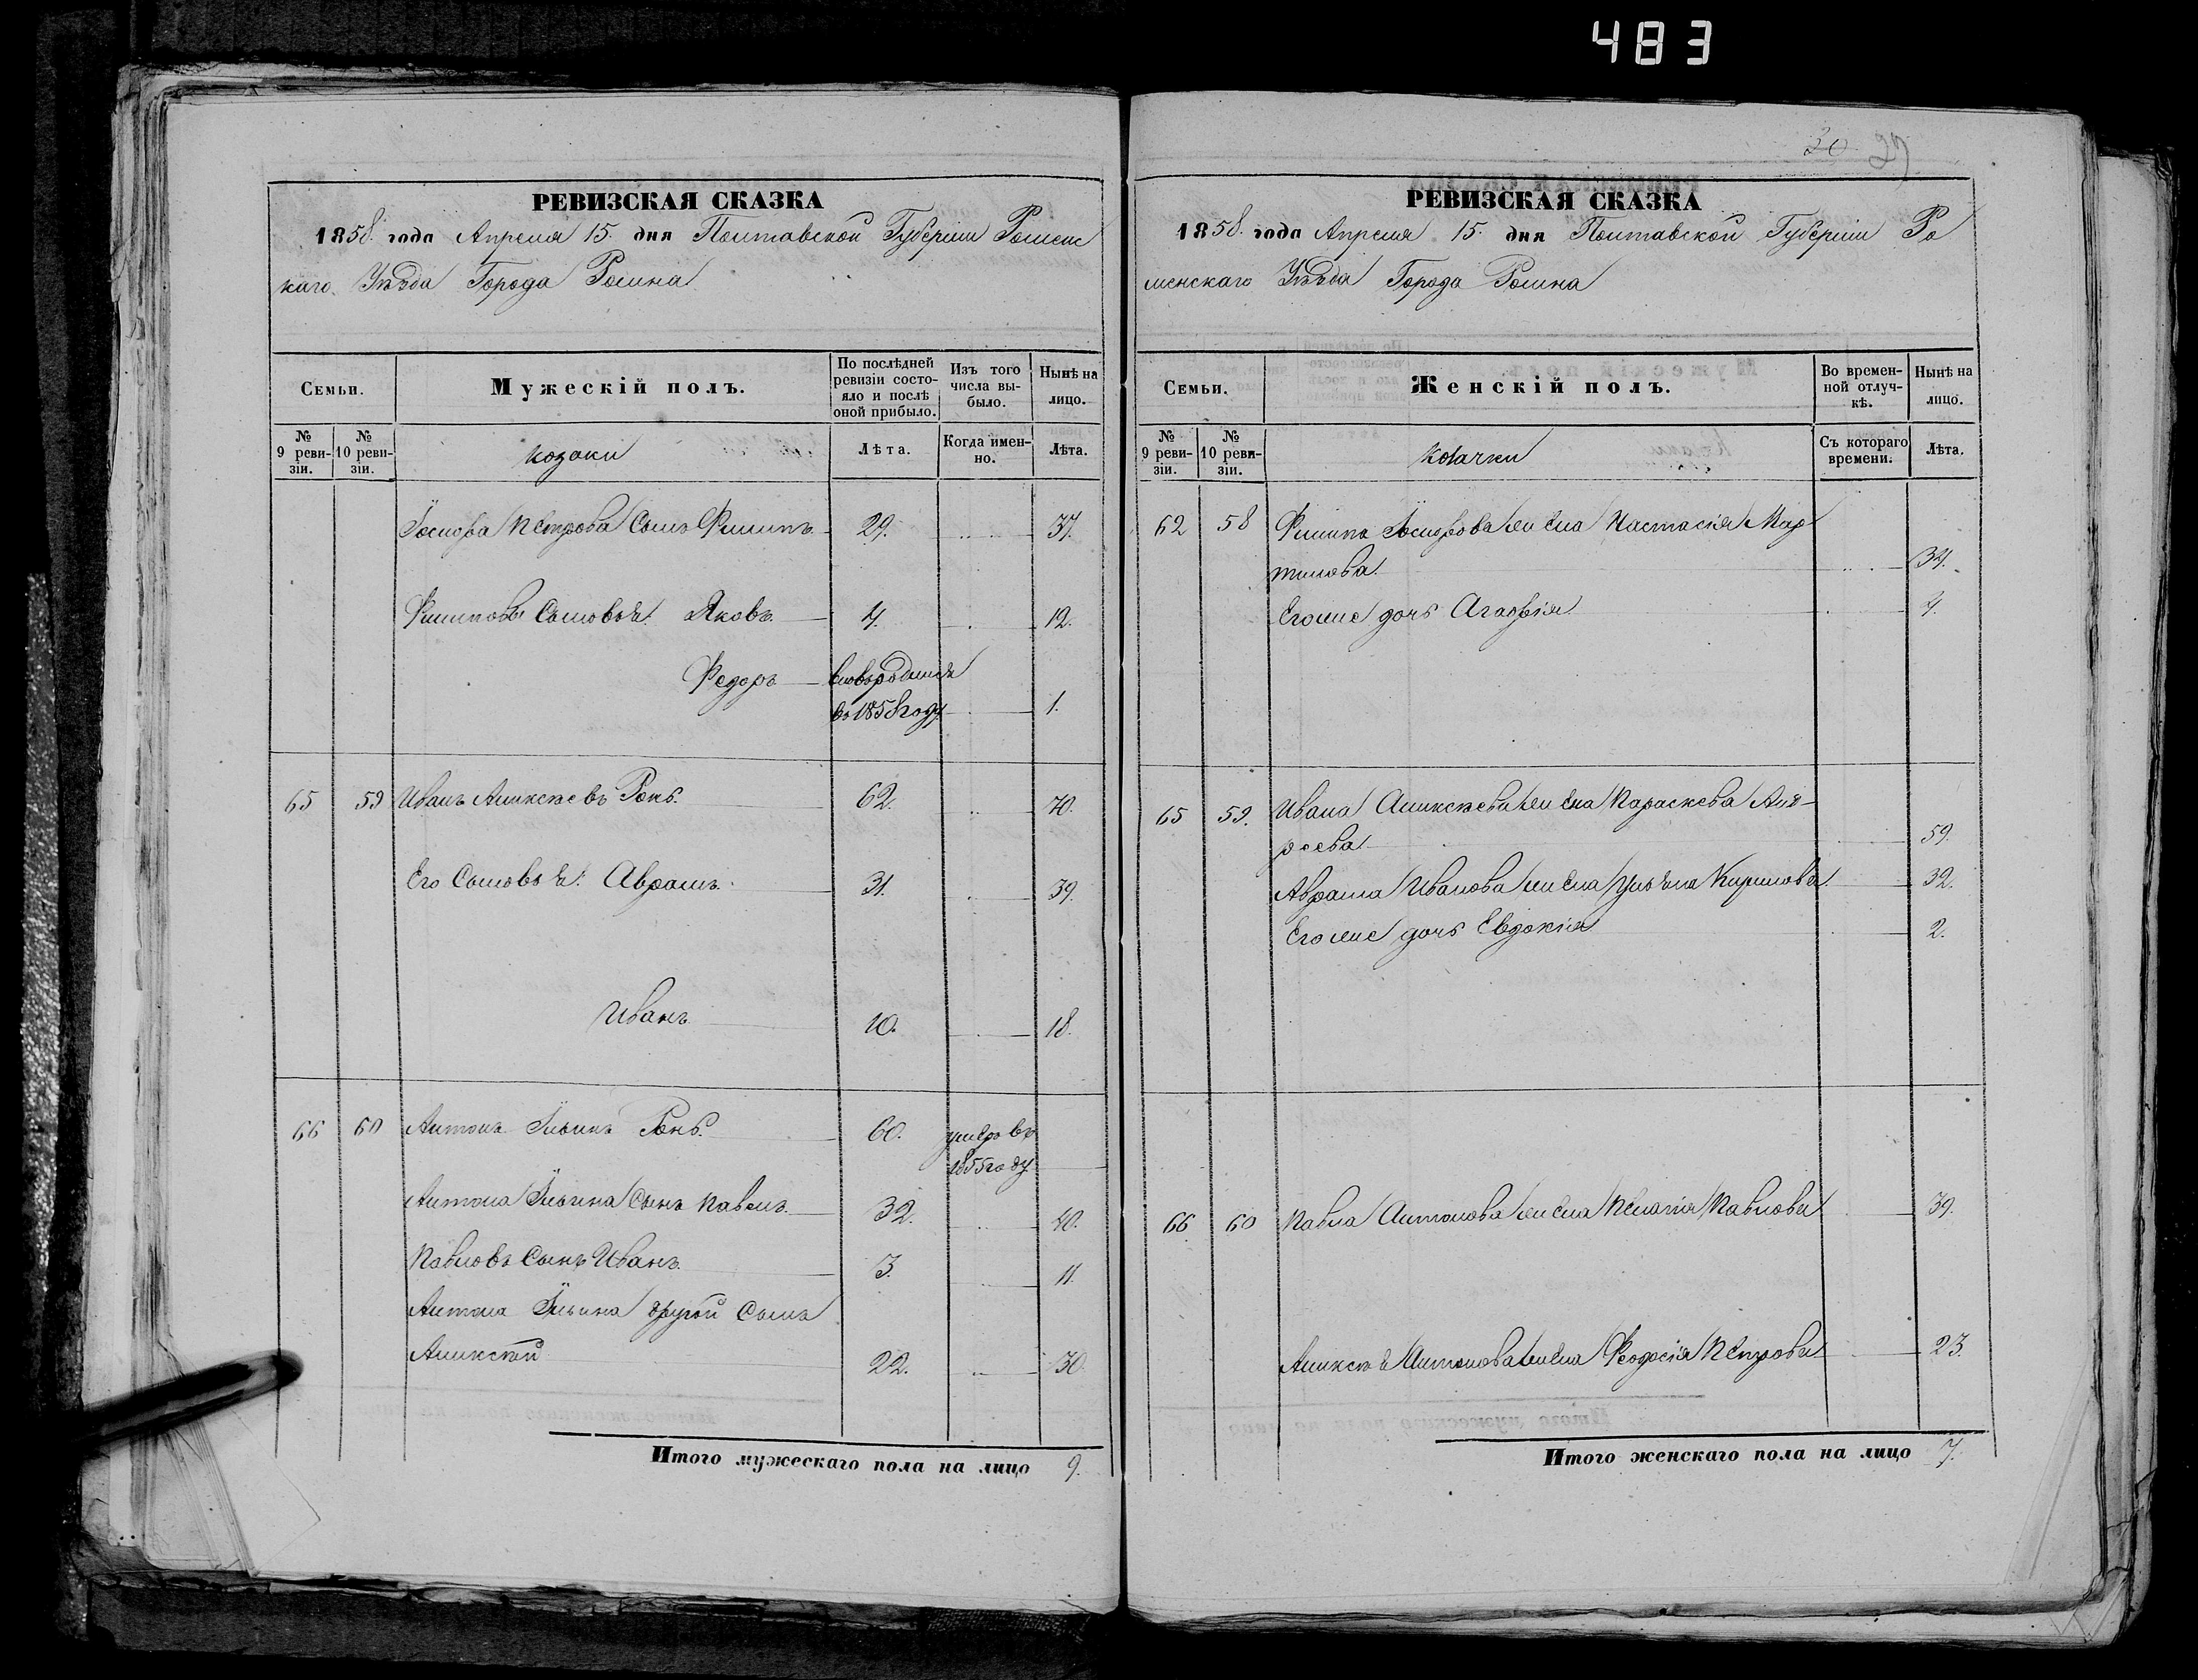 483
30 27
РЕВИЗСКАЯ СКАЗКА
1858. года Апреля 15. дня Полтавской Губерніи Роменс
каго Уѣзда Города Ромна
Семьи.
Мужескій полъ.
По послѣдней ревизіи состояло и послѣ оной прибыло.
Изъ того числа выбыло.
Нынѣ на лицо.
№ 9 ревизіи.
№ 10 ревизіи.
козаки
Лѣта.
Когда именно.
Лѣта.
Іосифа Петрова Сынъ Филипъ 29. 37.
Филиповы Сыновья: Яковъ 4. 12.
Федоръ вновьродился
во 1858 году 1.
65 59 Иванъ Аликсѣевъ Рокъ. 62. 70.
Его Сыновья: Аврамъ. 31. 39.
Иванъ 10. 18.
66 60 Антонъ Ильинъ Рокъ. 60. умеръ въ
1855 году
Антона Ильина Сынъ Павелъ. 32. 40.
Павловъ Сынъ Иванъ. 3. 11.
Антона Ильина другой Сынъ
Аликсѣй 22. 30.
Итого мужескаго пола на лицо 9.
РЕВИЗСКАЯ СКАЗКА
1858. года Апреля 15. дня Полтавской Губерніи Ро
менскаго Уѣзда Города Ромна
Семьи.
Женскій полъ.
Во временной отлучкѣ.
Нынѣ на лицо.
№ 9 ревизіи.
№ 10 ревизіи.
козачки
Съ котораго времени.
Лѣта.
62 58 Филипа Іосифова жена Настасія Мар
тинова. 34.
Егоже дочь Агафія 4.
65 59. Ивана Аликсѣева жена Параскева Анд-
реева 59.
Аврама Иванова жена Ульяна Кирилова 32.
Егоже дочь Евдокія 2.
66 60 Павла Антонова жена Пелагія Павлова 39.
Аликсѣя Антонова жена Феодосія Петрова 23.
Итого женскаго пола на лицо 7.